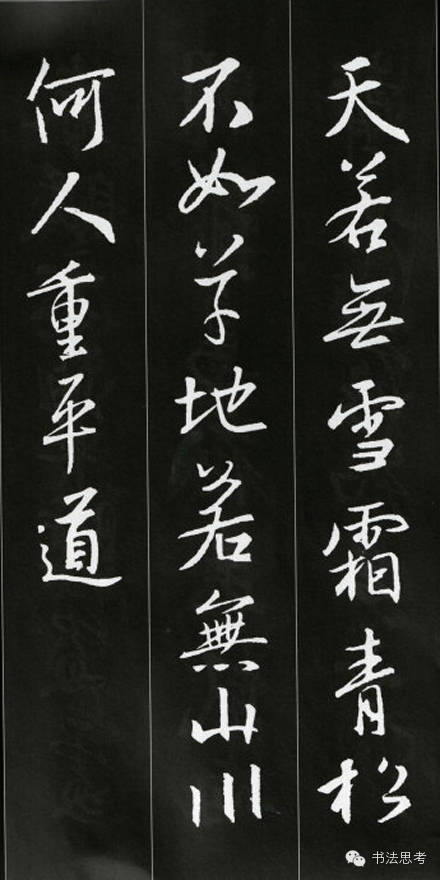 天若無雪霜青松
不如草地若無山川
何人重平道
书法思考